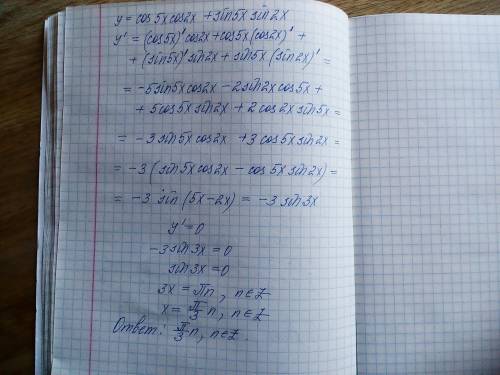 y = cos5x cos2x + sin5x sin2x
y' = (cos5x)' cos2x + cos5x (cos2x)' +
+ (sin5x)' sin2x + sin5x (sin2x)' =
= -5sin5x cos2x - 2sin2x cos5x +
+ 5cos5x sin2x + 2cos2x sin5x =
= -3sin5x cos2x + 3cos5x sin2x =
= -3(sin5x cos2x - cos5x sin2x) =
= -3 sin(5x-2x) = -3 sin3x
y' = 0
-3 sin3x = 0
sin3x = 0
3x = πn, n∈Z
x = π/3 n, n∈Z
Ответ: π/3 n, n∈Z.